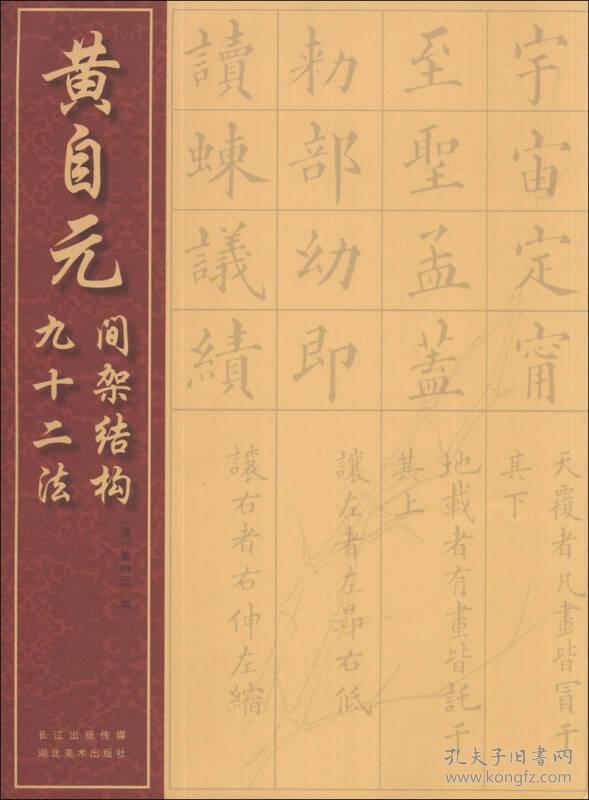 黄自元
间架结构
九十二法
(清)黄自元 书
长江出版传媒
湖北美术出版社
宇宙定甯
天覆者凡畫皆冒于
其下
至聖孟蓋
地載者有畫皆託于
其上
勅部幼即
讓左者左昂右低
讀蝀議績
讓右者右伸左縮
孔夫子旧书网
www.kongfz.com